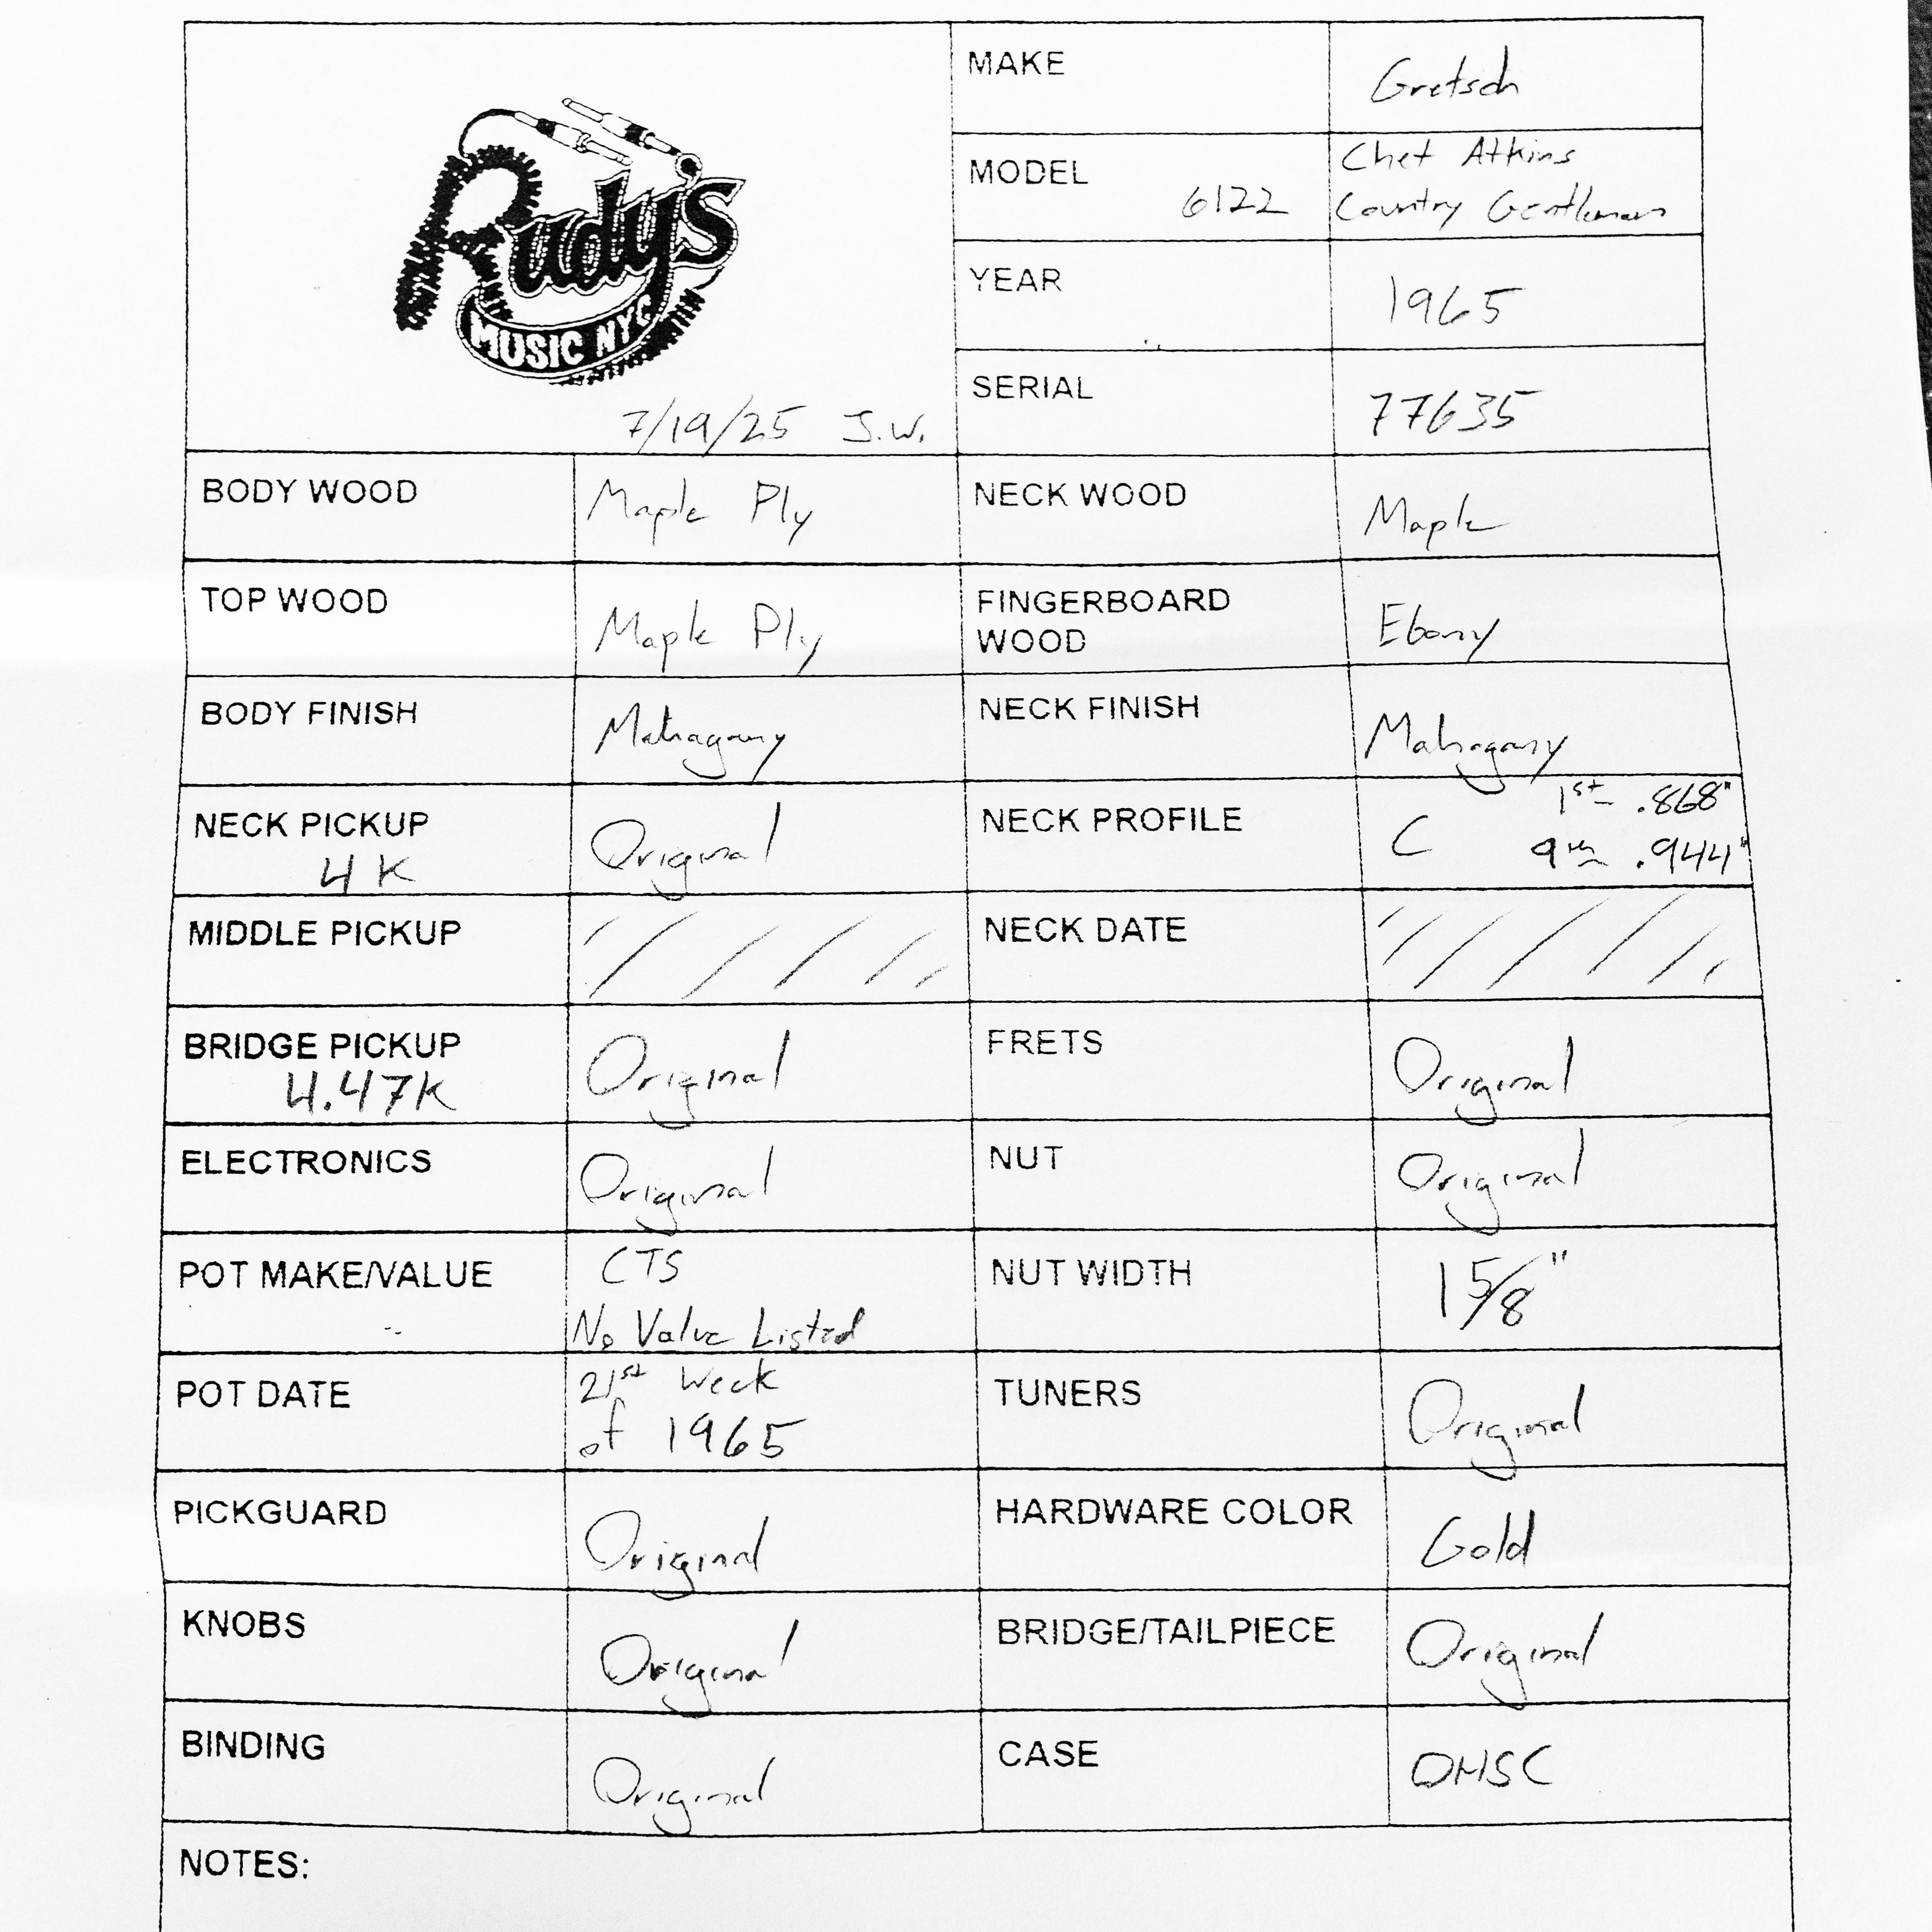 Rudy's
MUSIC NYC
7/19/25 J.W.
MAKE
Gretsch
MODEL
6122
Chet Atkins
Country Gentleman
YEAR
1965
SERIAL
77635
BODY WOOD
Maple Ply
NECK WOOD
Maple
TOP WOOD
Maple Ply
FINGERBOARD
WOOD
Ebony
BODY FINISH
Mahogany
NECK FINISH
Mahogany
NECK PICKUP
4K
Original
NECK PROFILE
C
1st - .868"
9th - .944"
MIDDLE PICKUP
NECK DATE
BRIDGE PICKUP
4.47K
Original
FRETS
Original
ELECTRONICS
Original
NUT
Original
POT MAKE/VALUE
CTS
No Value Listed
NUT WIDTH
1 5/8"
POT DATE
21st Week
of 1965
TUNERS
Original
PICKGUARD
Original
HARDWARE COLOR
Gold
KNOBS
Original
BRIDGE/TAILPIECE
Original
BINDING
Original
CASE
OHSC
NOTES: